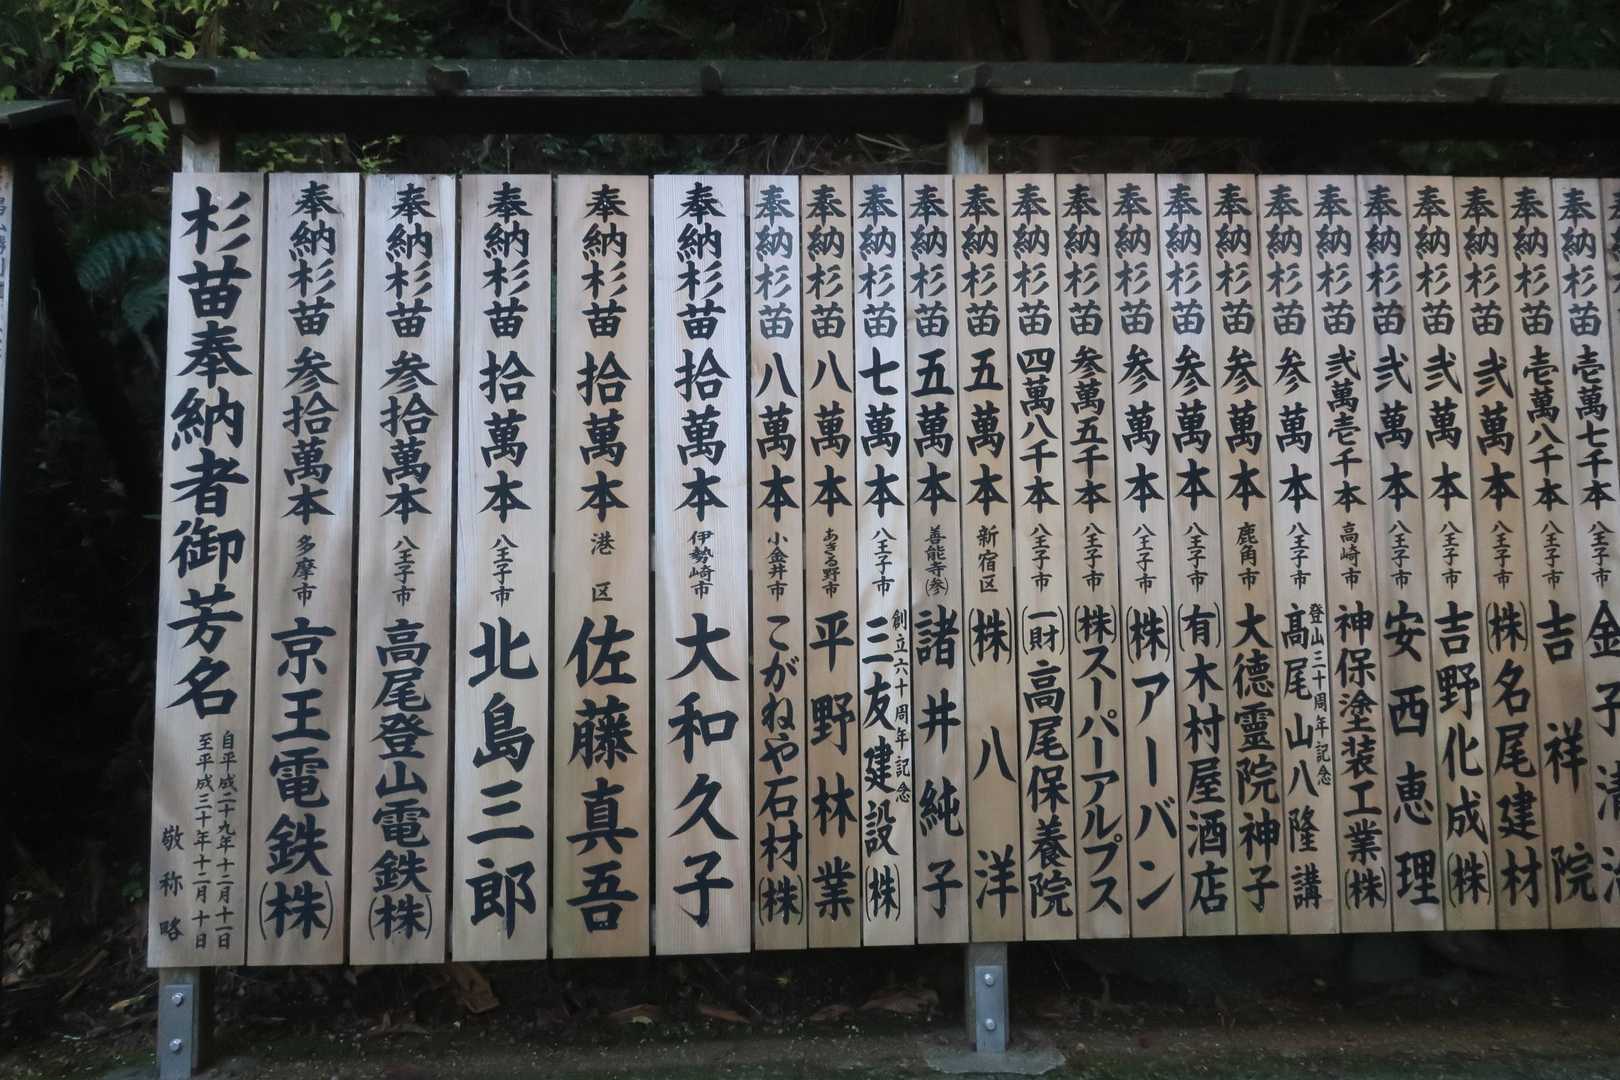 杉苗奉納者御芳名
自平成二十九年十二月十一日
至平成三十年十二月十日
敬称略
奉納杉苗 参拾萬本 多摩市 京王電鉄(株)
奉納杉苗 参拾萬本 八王子市 高尾登山電鉄(株)
奉納杉苗 拾萬本 八王子市 北島三郎
奉納杉苗 拾萬本 港区 佐藤真吾
奉納杉苗 拾萬本 伊勢崎市 大和久子
奉納杉苗 八萬本 小金井市 こがねや石材(株)
奉納杉苗 八萬本 あきる野市 平野林業
奉納杉苗 七萬本 八王子市 創立六十周年記念 三友建設(株)
奉納杉苗 五萬本 善能寺(参) 諸井純子
奉納杉苗 五萬本 新宿区 (株)八洋
奉納杉苗 四萬八千本 八王子市 (一財)高尾保養院
奉納杉苗 参萬五千本 八王子市 (株)スーパーアルプス
奉納杉苗 参萬本 八王子市 (株)アーバン
奉納杉苗 参萬本 八王子市 (有)木村屋酒店
奉納杉苗 参萬本 鹿角市 大德靈院神子
奉納杉苗 参萬本 八王子市 登山三十周年記念 髙尾山八隆講
奉納杉苗 弐萬壱千本 高崎市 神保塗装工業(株)
奉納杉苗 弐萬本 八王子市 安西恵理
奉納杉苗 弐萬本 八王子市 吉野化成(株)
奉納杉苗 弐萬本 八王子市 (株)名尾建材
奉納杉苗 壱萬八千本 八王子市 吉祥院
奉納杉苗 壱萬七千本 八王子市 金子